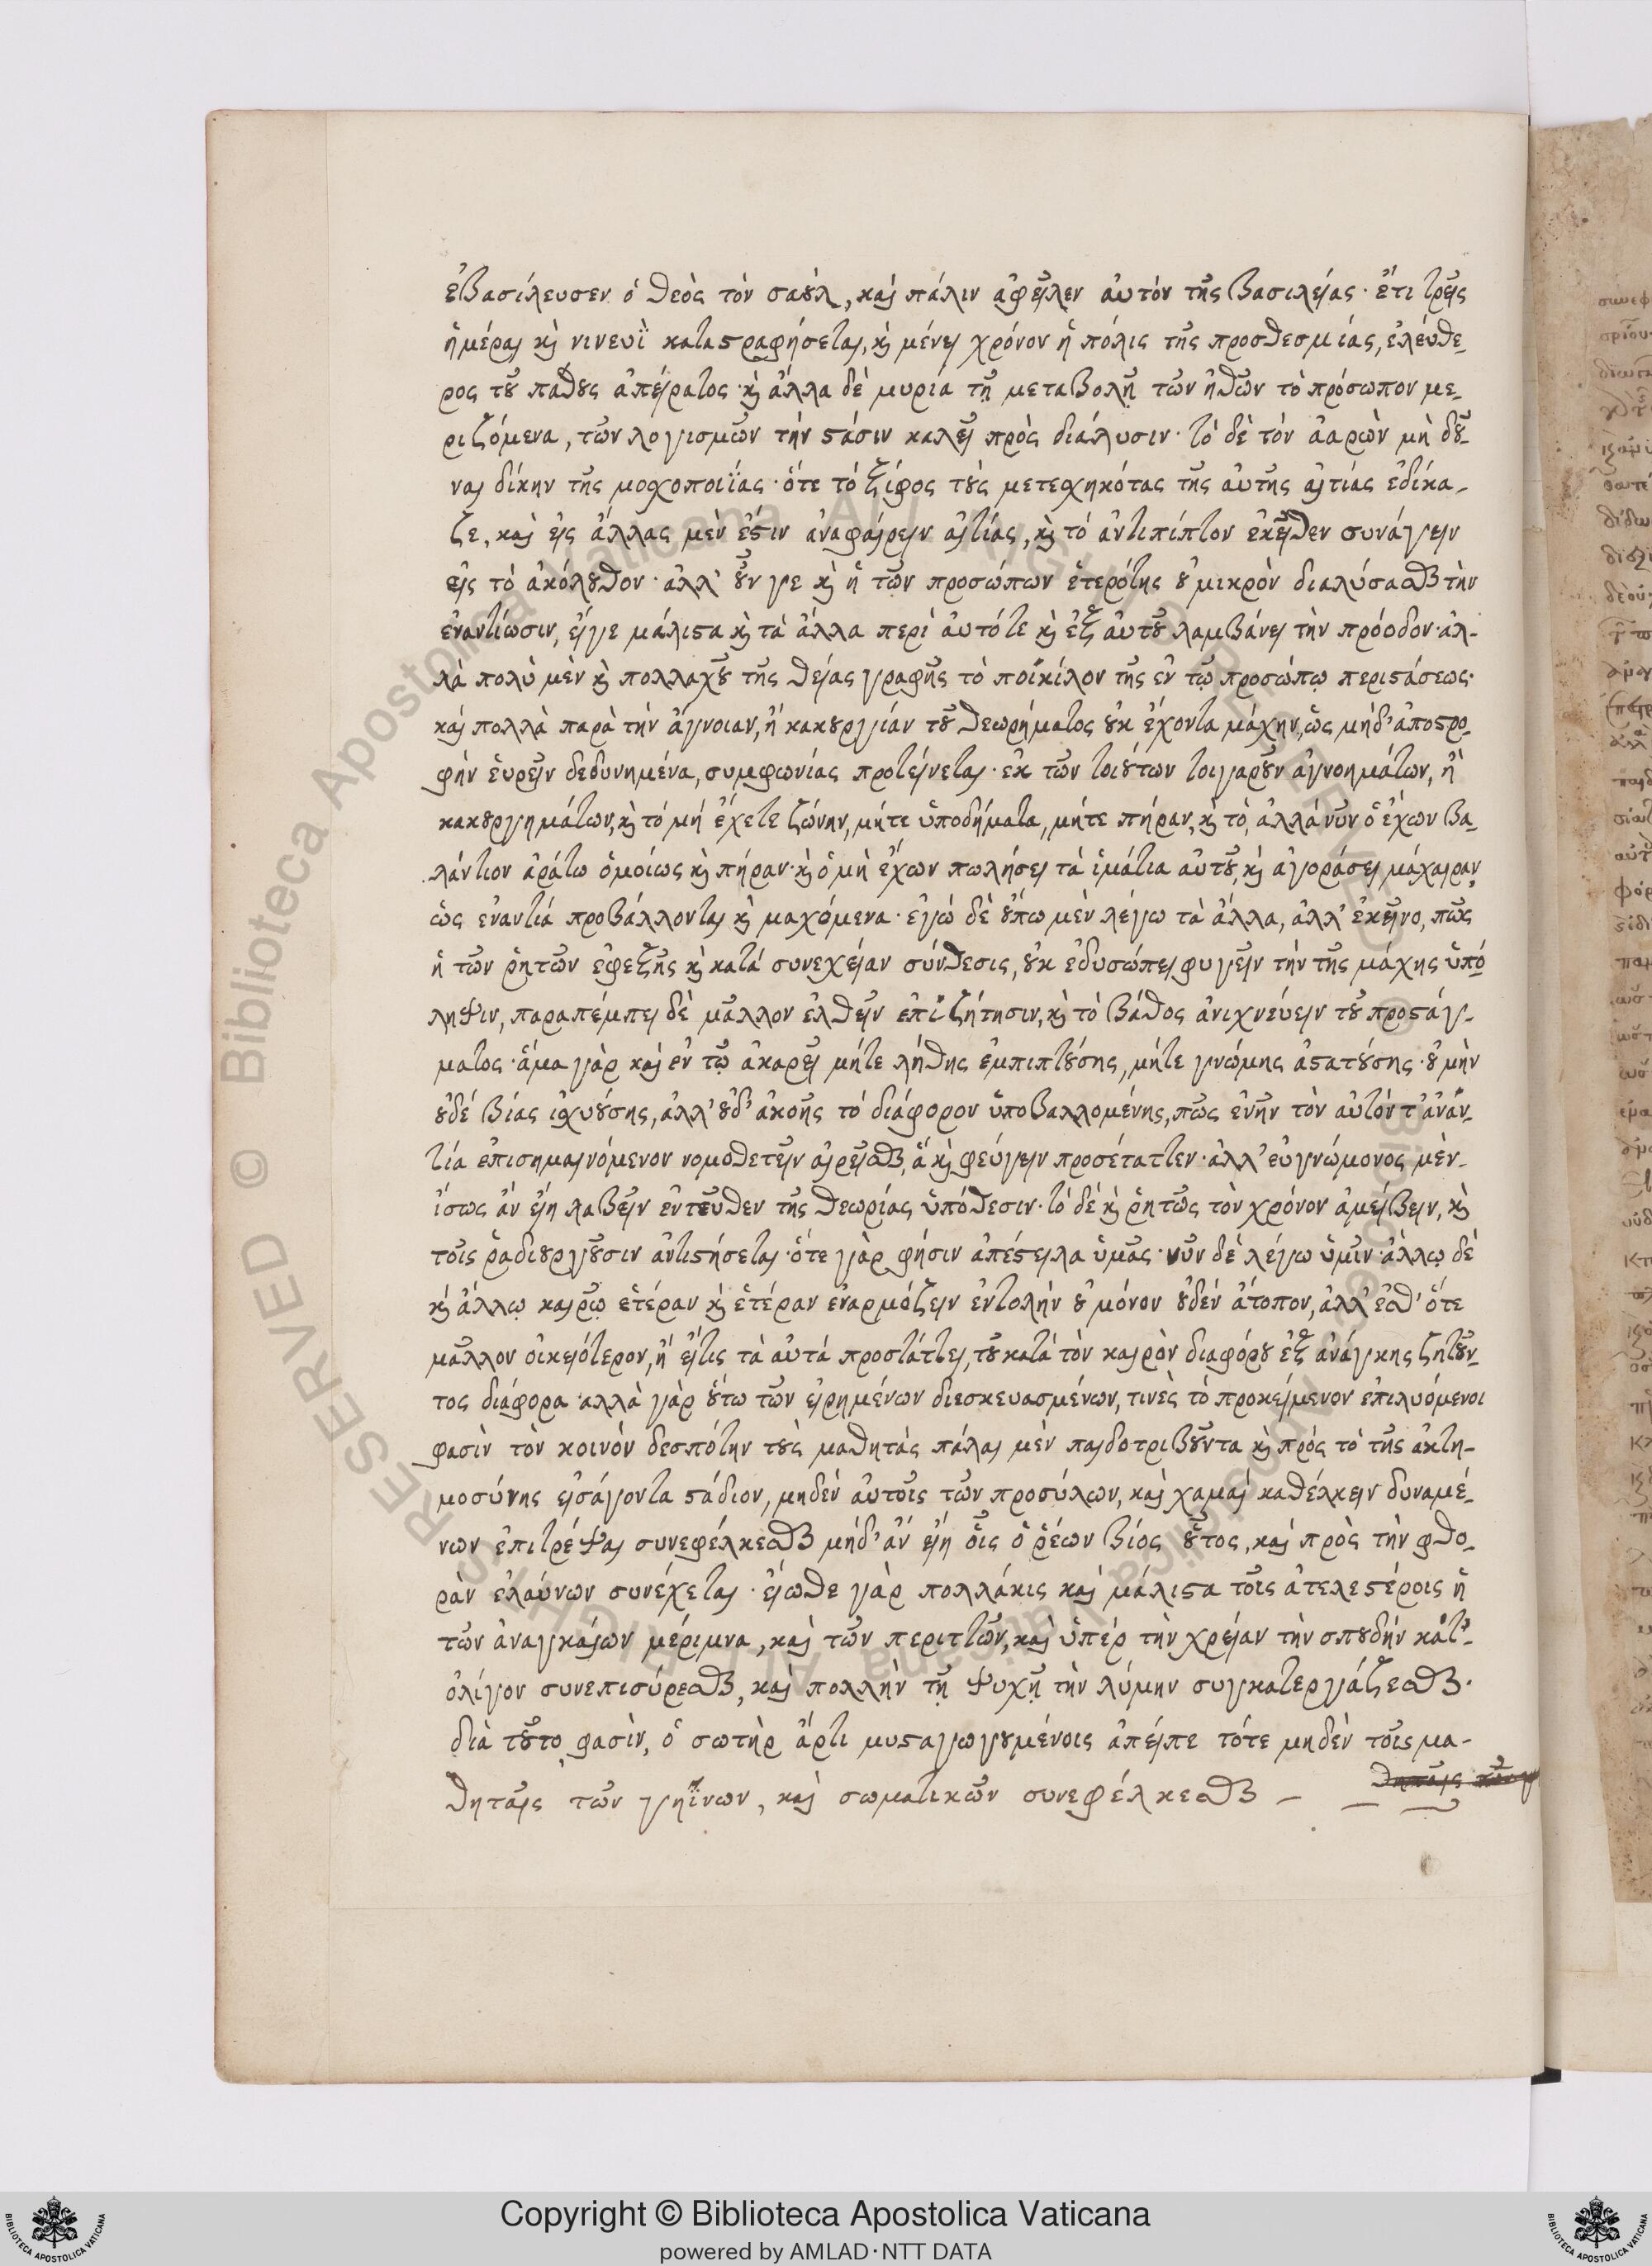 ἐβασίλευσεν ὁ θεὸς τὸν σαοὺλ, καὶ πάλιν ἀφεῖλεν αὐτὸν τῆς βασιλείας· ἔτι τρεῖς
ἡμέραι κὶ νινευῒ καταϛραφήσεται, κὶ μένει χρόνον ἡ πόλις τῆς προσθεσμίας, ἐλεύθε-
ρος τοῦ πάθους ἀπείρατος· κὶ ἄλλα δὲ μυρία τῇ μεταβολῇ τῶν ἠθῶν τὸ πρόσωπον με-
ριζόμενα, τῶν λογισμῶν τὴν ϛάσιν καλεῖ πρὸς διάλυσιν· τὸ δὲ τὸν ἀαρὼν μὴ δοῦ-
ναι δίκην τῆς μοσχοποιΐας· ὅτε τὸ ξίφος τοὺς μετεσχηκότας τῆς αὐτῆς αἰτίας ἐδίκα-
ζε, καὶ εἰς ἄλλας μέν ἐϛιν ἀναφαίρειν αἰτίας, κὶ τὸ ἀντιπίπτον ἐκεῖθεν συνάγειν
εἰς τὸ ἀκόλουθον· ἀλλ' οὖν γε κὶ ἡ τῶν προσώπων ἑτερότης οὐ μικρὸν διαλύσασθαι τὴν
ἐναντίωσιν, εἴγε μάλιϛα κὶ τὰ ἄλλα περὶ αὐτό τε κὶ ἐξ αὐτοῦ λαμβάνει τὴν πρόοδον· ἀλ-
λὰ πολὺ μὲν κὶ πολλαχοῦ τῆς θείας γραφῆς τὸ ποίκιλον τῆς ἐν τῷ προσώπῳ περιϛάσεως·
καὶ πολλὰ παρὰ τὴν ἄγνοιαν, ἢ κακουργίαν τοῦ θεωρήματος οὐκ ἔχοντα μάχην, ὡς μήδ' ἀποϛρο-
φὴν εὑρεῖν δεδυνημένα, συμφωνίας προτείνεται· ἐκ τῶν τοιούτων τοιγαροῦν ἀγνοημάτων, ἢ
κακουργημάτων, κὶ τὸ μὴ ἔχετε ζώνην, μήτε ὑποδήματα, μήτε πήραν, κὶ τὸ, ἀλλὰ νῦν ὁ ἔχων βα-
λάντιον ἀράτω ὁμοίως κὶ πήραν· κὶ ὁ μὴ ἔχων πωλήσει τὰ ἱμάτια αὐτοῦ, κὶ ἀγοράσει μάχαιραν,
ὡς ἐναντία προβάλλονται κὶ μαχόμενα· ἐγὼ δὲ οὔπω μὲν λέγω τὰ ἄλλα, ἀλλ' ἐκεῖνο, πῶς
ἡ τῶν ῥητῶν ἐφεξῆς κὶ κατὰ συνεχείαν σύνθεσις, οὐκ ἐδυσώπει φυγεῖν τὴν τῆς μάχης ὑπό-
ληψιν, παραπέμπει δὲ μᾶλλον ἐλθεῖν ἐπὶ ζήτησιν, κὶ τὸ βάθος ἀνιχνεύειν τοῦ προϛάγ-
ματος· ἅμα γὰρ καὶ ἐν τῷ ἀκαρεῖ μήτε λήθης ἐμπιπτούσης, μήτε γνώμης ἀϛατούσης· οὐ μὴν
οὐδὲ βίας ἰσχυούσης, ἀλλ' οὐδ' ἀκοῆς τὸ διάφορον ὑποβαλλομένης, πῶς ἐνῆν τὸν αὐτὸν τ' ἀνάν-
τία ἐπισημαινόμενον νομοθετεῖν αἱρεῖσθαι, ἃ κὶ φεύγειν προσέταττεν· ἀλλ' εὐγνώμονος μὲν-
ἴσως ἂν εἴη λαβεῖν ἐντεῦθεν τῆς θεωρίας ὑπόθεσιν· τὸ δὲ κὶ ῥητῶς τὸν χρόνον ἀμείβειν, κὶ
τοῖς ῥαδιουργοῦσιν ἀντιϛήσεται· ὅτε γὰρ φήσιν ἀπέϛειλα ὑμᾶς· νῦν δὲ λέγω ὑμῖν· ἄλλῳ δὲ
κὶ ἄλλῳ καιρῷ ἑτέραν κὶ ἑτέραν ἐναρμόζειν ἐντολὴν οὐ μόνον οὐδὲν ἄτοπον, ἀλλ' ἔσθ' ὅτε
μᾶλλον οἰκειότερον, ἢ εἴτις τὰ αὐτὰ προστάττει, τοῦ κατὰ τὸν καιρὸν διαφόρου ἐξ ἀνάγκης ζητοῦν-
τος διάφορα· ἀλλὰ γὰρ οὕτω τῶν εἰρημένων διεσκευασμένων, τινὲς τὸ προκείμενον ἐπιλυόμενοι
φασὶν τὸν κοινὸν δεσπότην τοὺς μαθητάς πάλαι μὲν παιδοτριβοῦντα κὶ πρὸς τὸ τῆς ἀκτη-
μοσύνης εἰσάγοντα ϛάδιον, μηδὲν αὐτοῖς τῶν προσύλων, καὶ χαμαὶ καθέλκειν δυναμέ-
νων ἐπιτρέψαι συνεφέλκεσθαι μήδ' ἂν εἴη οἷς ὁ ῥέων βίος οὗτος, καὶ πρὸς τὴν φθο-
ρὰν ἐλαύνων συνέχεται· εἴωθε γὰρ πολλάκις καὶ μάλιϛα τοῖς ἀτελεϛέροις ἡ
τῶν ἀναγκαίων μέριμνα, καὶ τῶν περιττῶν, καὶ ὑπὲρ τὴν χρείαν τὴν σπουδὴν κατ'-
ὀλίγον συνεπισύρεσθαι, καὶ πολλὴν τῇ ψυχῇ τὴν λύμην συγκατεργάζεσθαι·
διὰ τοῦτο φασὶν, ὁ σωτὴρ ἄρτι μυϛαγωγουμένοις ἀπείπε τότε μηδὲν τοῖς μα-
θηταῖς τῶν γηΐνων, καὶ σωματικῶν συνεφέλκεσθαι –
Copyright © Biblioteca Apostolica Vaticana
powered by AMLAD·NTT DATA